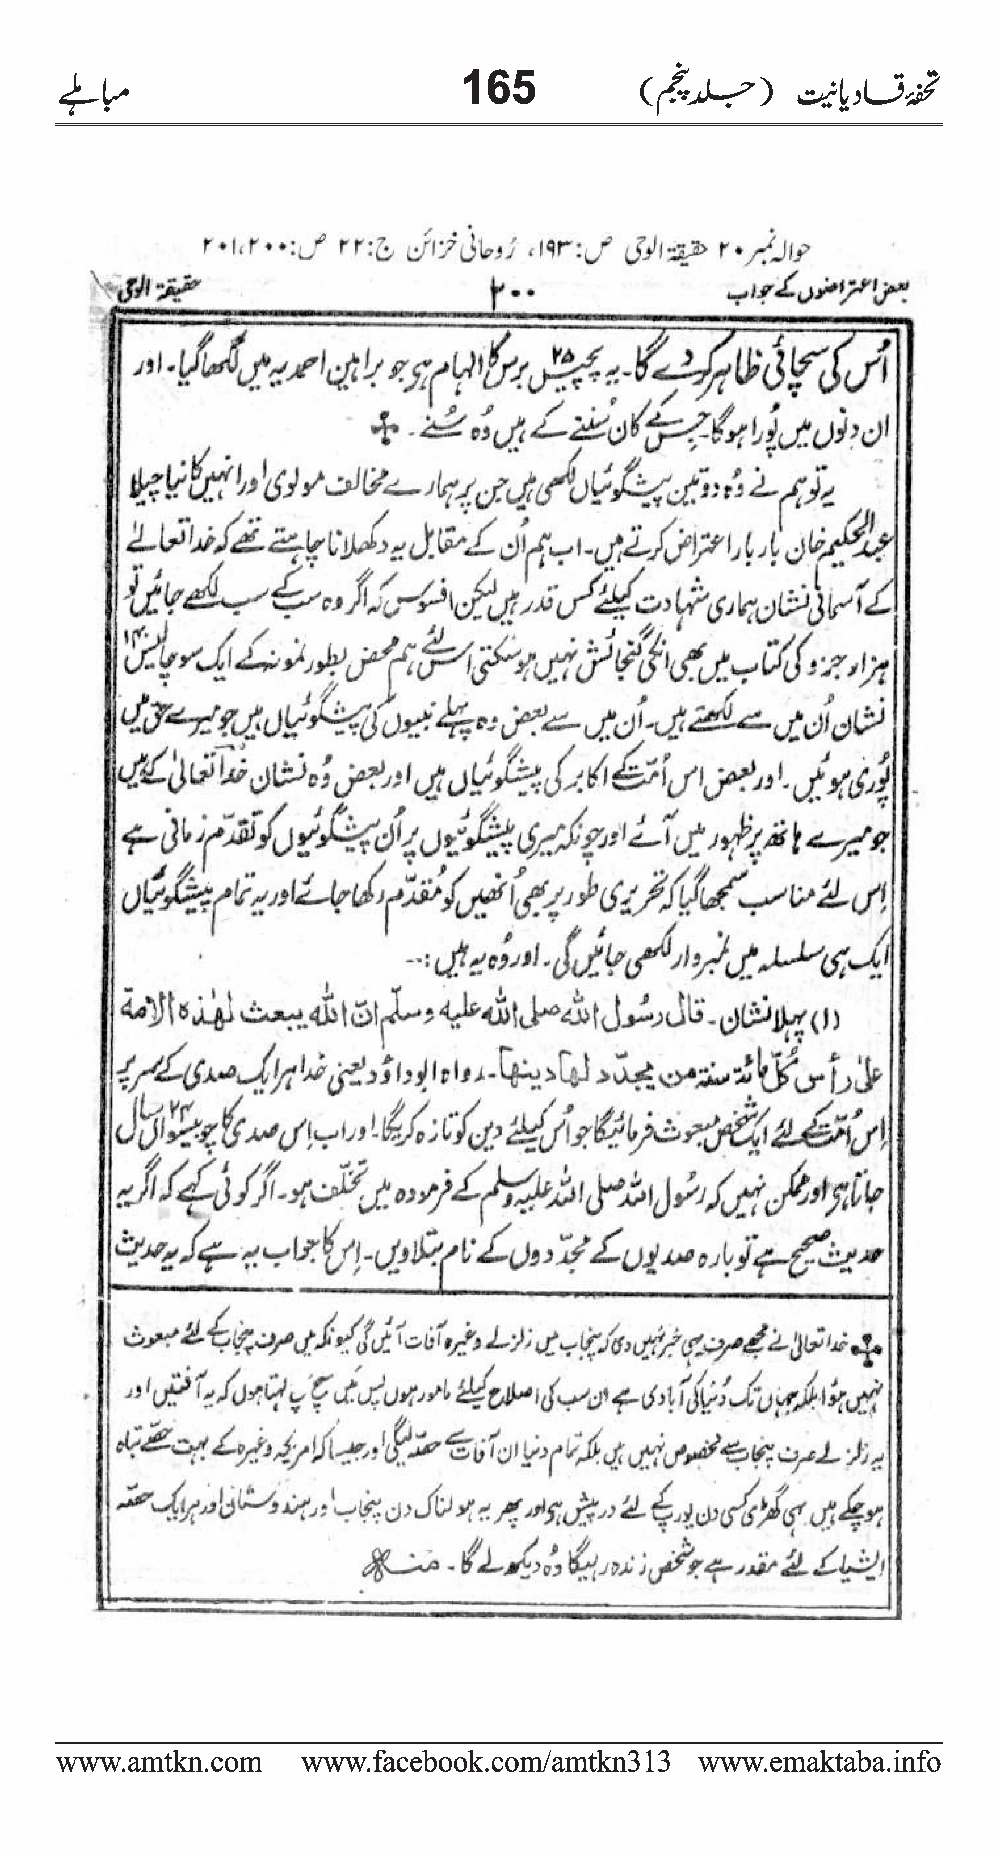 تحفۂ قادیانیت (جلد پنجم) 165 مباہلے
حوالہ نمبر ۲۰ حقیقۃ الوحی ص:۱۹۳، رُوحانی خزائن ج:۲۲ ص:۲۰۰،۲۰۱
بعض اعتراضوں کے جواب ۲۰۰ حقیقۃ الوحی
اُس کی سچائی ظاہر کر دے گا۔ یہ پچیس ۲۵ برس کا الہام ہی جو براہین احمدیہ میں لکھا گیا۔ اور
ان دنوں میں پُورا ہوگا۔ جس کے کان سُننے کے ہیں وُہ سُنے ۔
یہ تو ہم نے وُہ دو تین پیشگوئیاں لکھی ہیں جن پر ہمارے مخالف مولوی اور انہیں کا نیا چیلا
عبد الحکیم خان بار بار اعتراض کرتے ہیں۔ اب ہم اُن کے مقابل یہ دکھلانا چاہتے تھے کہ خدا تعالےٰ
کے آسمانی نشان ہماری شہادت کیلئے کس قدر ہیں لیکن افسوس کہ اگر وہ سب کے سب لکھے جائیں تو
ہزار جزو کی کتاب میں بھی انکی گنجائش نہیں ہو سکتی اس لئے ہم محض بطور نمونہ کے ایک سو چالیس ۱۴۰
نشان اُن میں سے لکھتے ہیں۔ اُن میں سے بعض وہ پہلے نبیوں کی پیشگوئیاں ہیں جو میرے حق میں
پُوری ہوئیں۔ اور بعض اس اُمّت کے اکابر کی پیشگوئیاں ہیں اور بعض وُہ نشان خدا تعالیٰ کے ہیں
جو میرے ہاتھ پر ظہور میں آئے اور چونکہ میری پیشگوئیوں پر اُن پیشگوئیوں کو تقدّم زمانی ہے
اِس لئے مناسب سمجھا گیا کہ تحریری طور پر بھی اُنھیں کو مُقدّم رکھا جائے اور یہ تمام پیشگوئیاں
ایک ہی سلسلہ میں نمبروار لکھی جائیں گی۔ اور وُہ یہ ہیں:۔۔
(۱) پہلا نشان۔ قال رسُول اللہ صلی اللہ علیہ وسلّم انّ اللہ یبعث لھٰذہ الامۃ
علیٰ رأس کُلّ مائۃ سنۃ من یجدّد لھا دینھا۔ رواہ ابو داؤد یعنی خدا ہر ایک صدی کے سر پر
اِس اُمّت کے لئے ایک شخص مبعوث فرمائیگا جو اُس کیلئے دین کو تازہ کریگا۔ اور اب اِس صدی کا چوبیسواں ۲۴ سال
جاتا ہی اور ممکن نہیں کہ رسُول اللہ صلی اللہ علیہ وسلم کے فرمودہ میں تخلّف ہو۔ اگر کوئی کہے کہ اگر یہ
حدیث صحیح ہے تو بارہ صدیوں کے مجدّدوں کے نام بتلاویں۔ اِس کا جواب یہ ہے کہ یہ حدیث
خدا تعالیٰ نے مجھے صرف یہی خبر نہیں دی کہ پنجاب میں زلزلے وغیرہ آفات آئیں گی کیونکہ میں صرف پنجاب کے لئے مبعوث
نہیں ہُوا بلکہ جہاں تک دُنیا کی آبادی ہے ان سب کی اصلاح کیلئے مامور ہوں پس میں سچ سچ کہتا ہوں کہ یہ آفتیں اور
یہ زلزلے صرف پنجاب سے مخصوص نہیں ہیں بلکہ تمام دنیا ان آفات سے حصّہ لیگی اور جیسا کہ امریکہ وغیرہ کے بہت حصّے تباہ
ہو چکے ہیں یہی گھڑی کسی دن یورپ کے لئے درپیش ہی اور پھر یہ ہولناک دن پنجاب اور ہندوستان اور ہر ایک حصّہ
ایشیا کے لئے مقدر ہے جو شخص زندہ رہیگا وُہ دیکھ لے گا۔ منہ
www.amtkn.com www.facebook.com/amtkn313 www.emaktaba.info